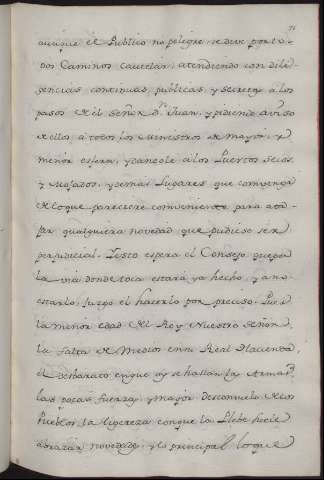 aunque el Publico no peligre, se deve por to
dos Caminos cautelar, atendiendo con dili
gencias continuas, publicas, y secretas a los
pasos del Señor Dn Juan, y pidiendo aviso
de ellos a todos los Ministros de mayor, y
menor esfera, y dandole a los Puertos Secos
y Mojados, y demas Lugares que convenga
de lo que pareciere conveniente para ata
jar qualquiera novedad que pudiese ser
perjudicial. Y esto espera el Consejo que por
la via donde toca estará ya hecho, y a no
estarlo, juzga el hacerlo por preciso. Pues
la menor edad del Rey Nuestro Señor,
la falta de Medios en su Real Hacienda,
el desbarato en que oy se hallan las Armas,
las pocas fuerzas, y mayor desconsuelo de los
Pueblos la ligereza con que la Plebe suele
abrazar novedades, y lo principal lo que